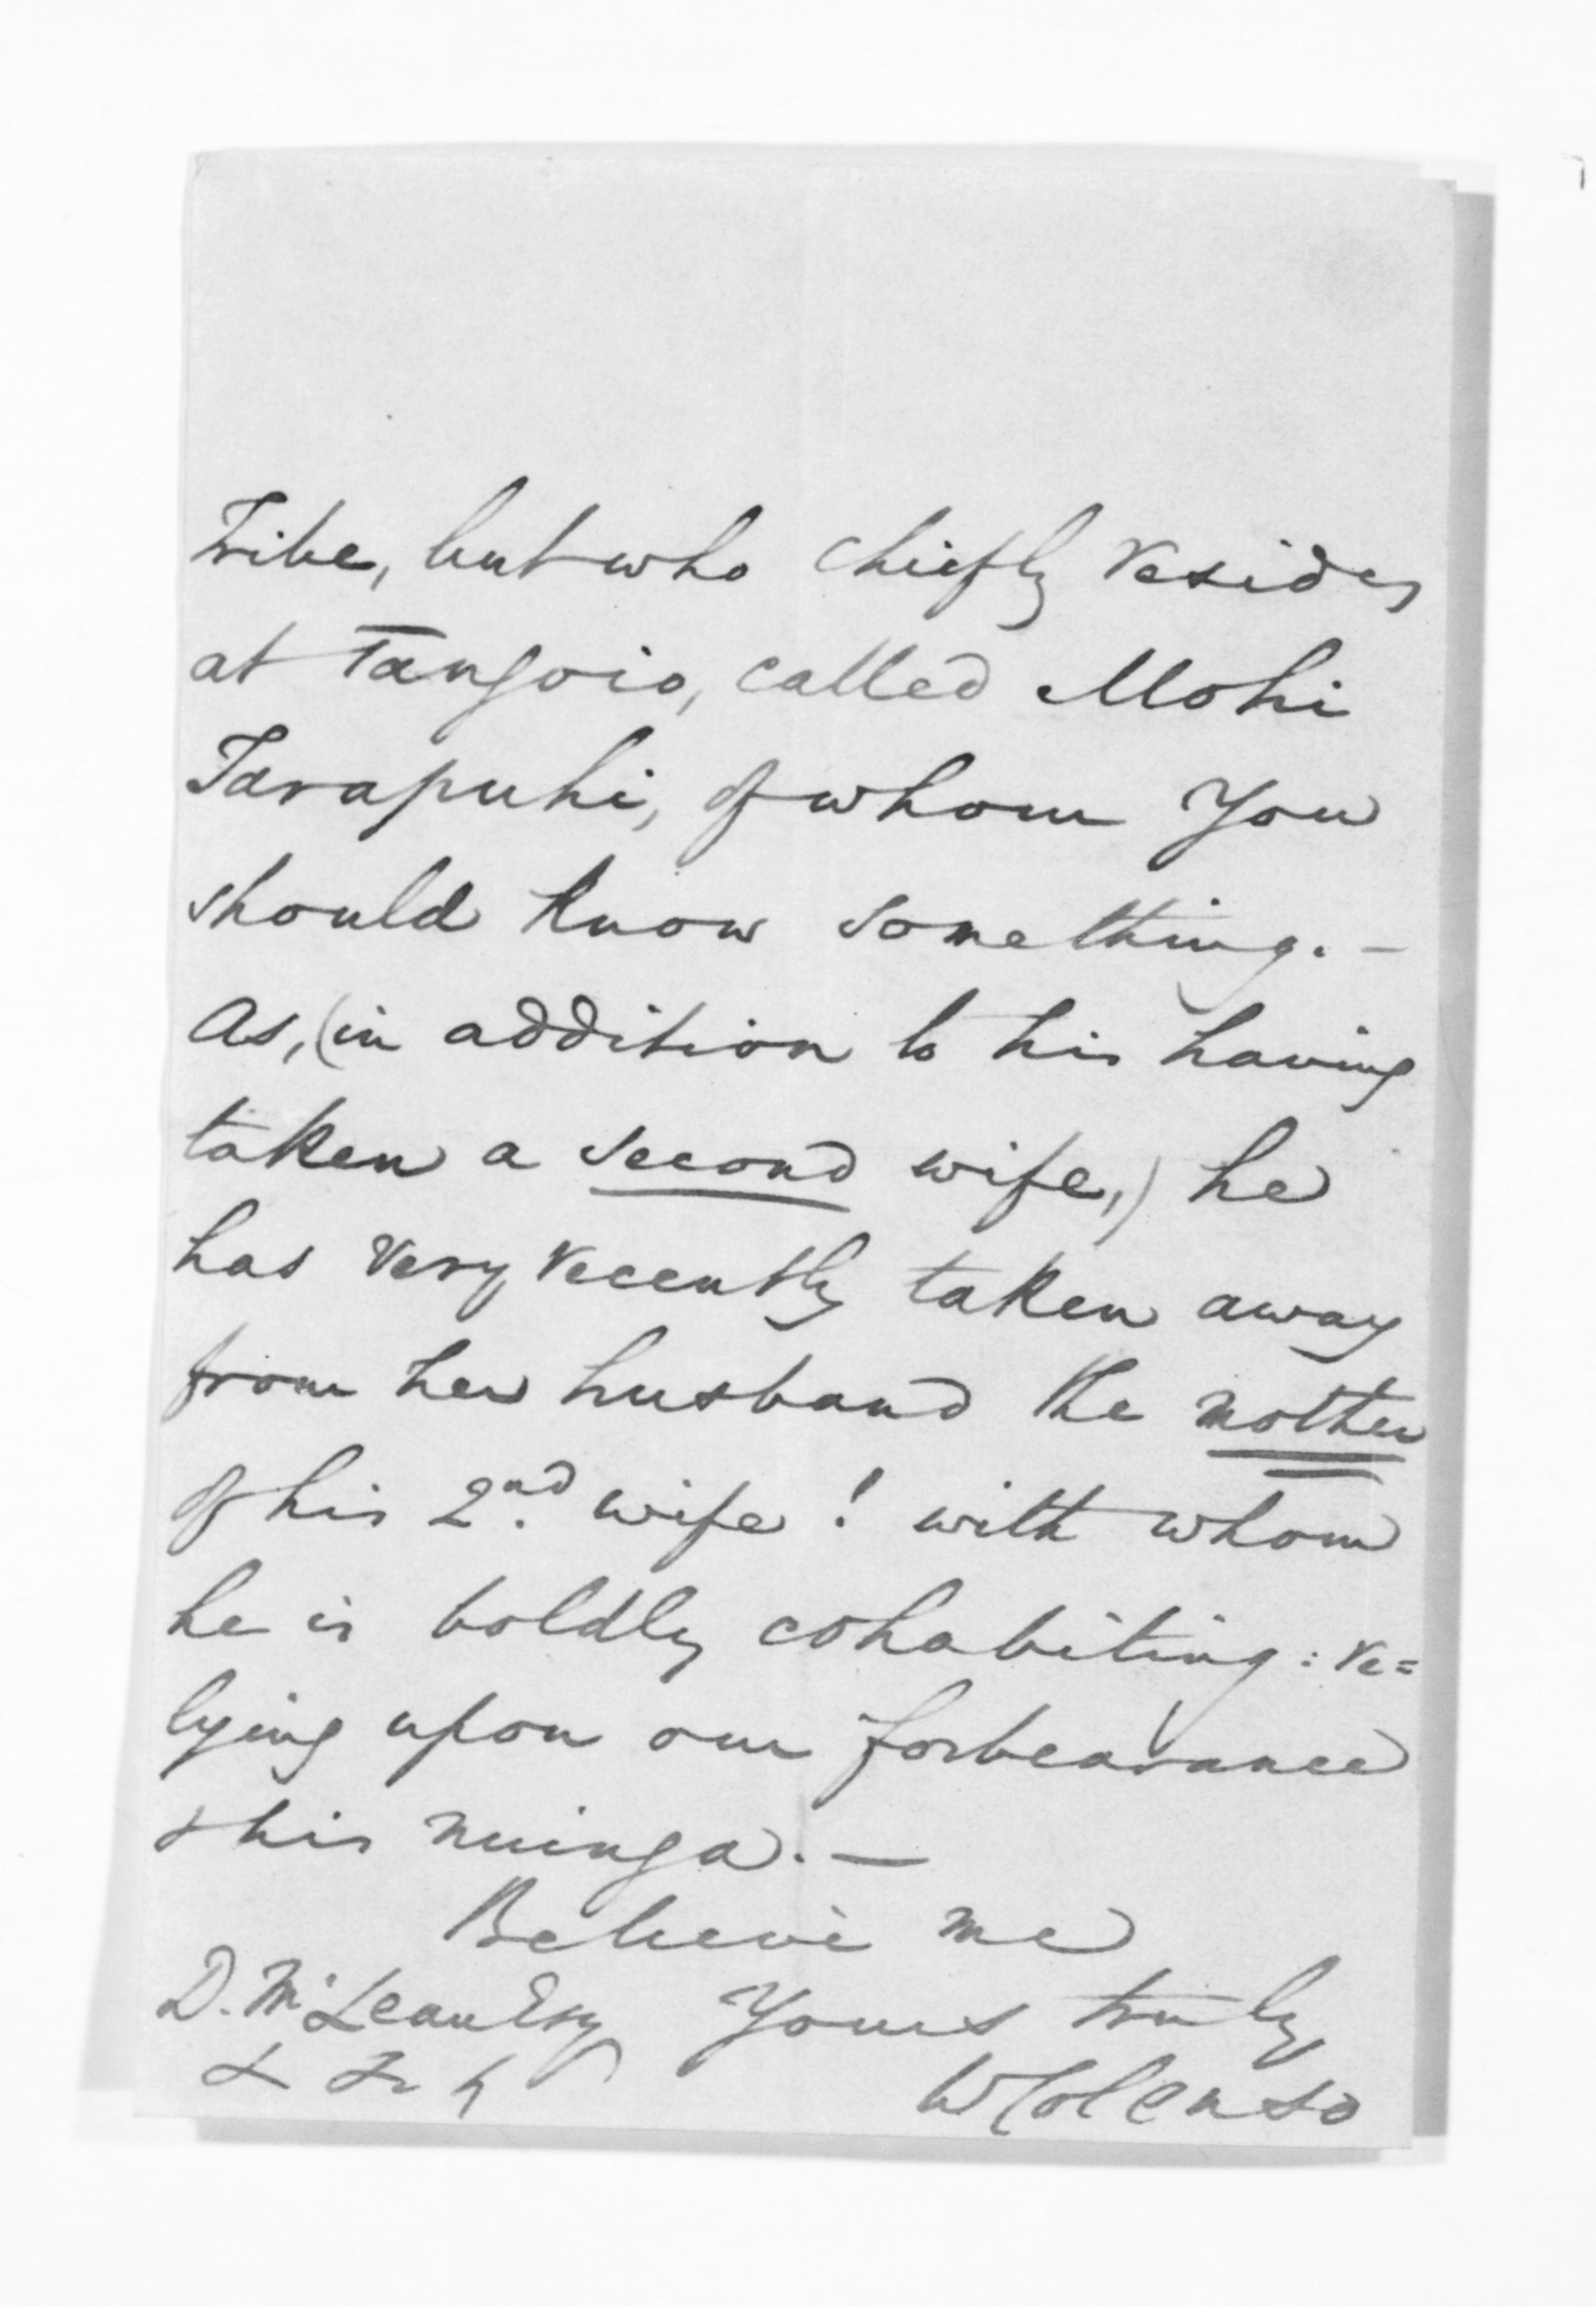 Tribe, but who chiefly resides
at Tangoio, called Mohi
Tarapuhi, of whom you
should know something. —
As, (in addition to his having
taken a second wife,) he
has very recently taken away
from her husband the mother
of his 2nd. wife! with whom
he is boldly cohabiting: re=
lying upon our forbearance
& his nuinga. —
Believe me
D. McLean Esq Yours truly,
W Colenso